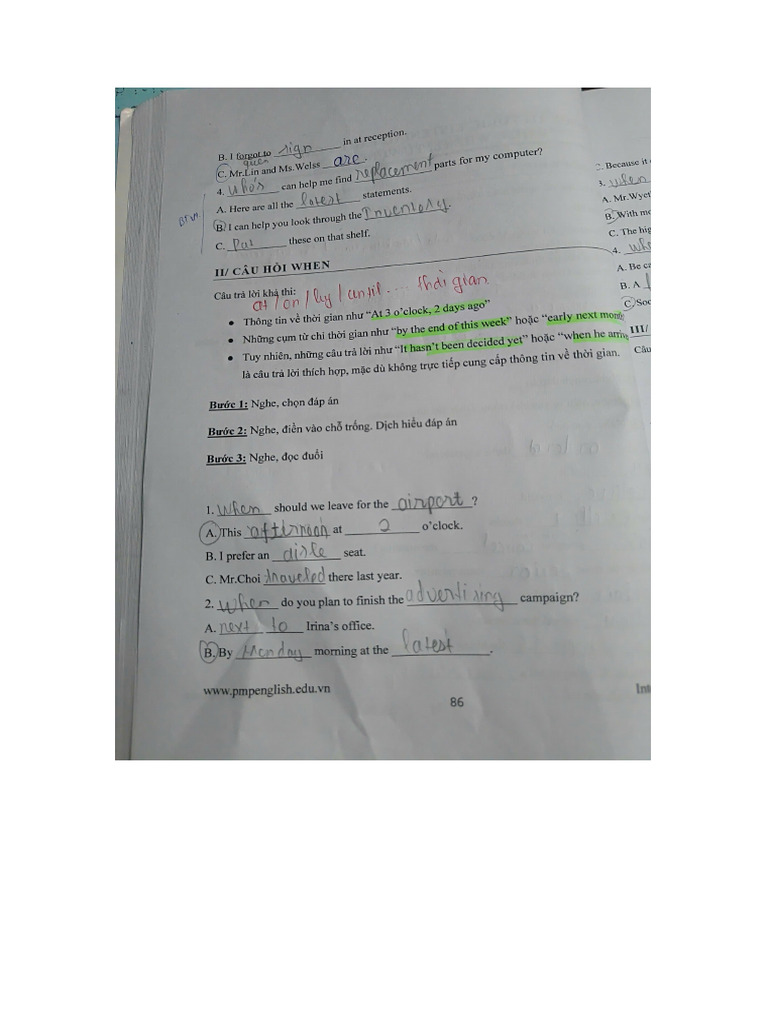 B. I forgot to sign in at reception.
quên
C. Mr.Lin and Ms.Welss are.
4. who's can help me find replacement parts for my computer?
A. Here are all the latest statements.
B. I can help you look through the Inventory.
C. Put these on that shelf.
II/ CÂU HỎI WHEN
Câu trả lời khả thi:
at / on / by / until .... thời gian
• Thông tin về thời gian như “At 3 o’clock, 2 days ago”
• Những cụm từ chỉ thời gian như “by the end of this week” hoặc “early next month
• Tuy nhiên, những câu trả lời như “It hasn’t been decided yet” hoặc “when he arrive
là câu trả lời thích hợp, mặc dù không trực tiếp cung cấp thông tin về thời gian.
Bước 1: Nghe, chọn đáp án
Bước 2: Nghe, điền vào chỗ trống. Dịch hiểu đáp án
Bước 3: Nghe, đọc đuổi
1. When should we leave for the airport ?
A. This afternoon at 2 o’clock.
B. I prefer an aisle seat.
C. Mr.Choi traveled there last year.
2. When do you plan to finish the advertising campaign?
A. next to Irina’s office.
B. By Monday morning at the latest.
www.pmpenglish.edu.vn
86
C. Because it
3. when
A. Mr.Wye
B. With mo
C. The hig
4. whe
A. Be ca
B. A
C. Soo
III/
Câu
Int